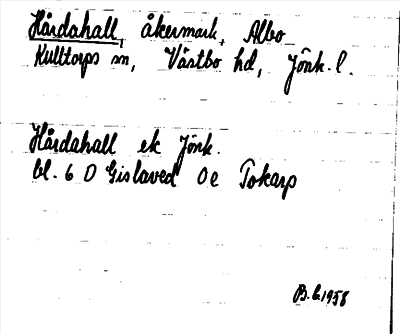 Hårdahall, åkermark, Albo
Kulltorps sn, Västbo hd, Jönk. l.
Hårdahall ek Jönk.
bl. 6 D Gislaved 0e Tokarp
1958